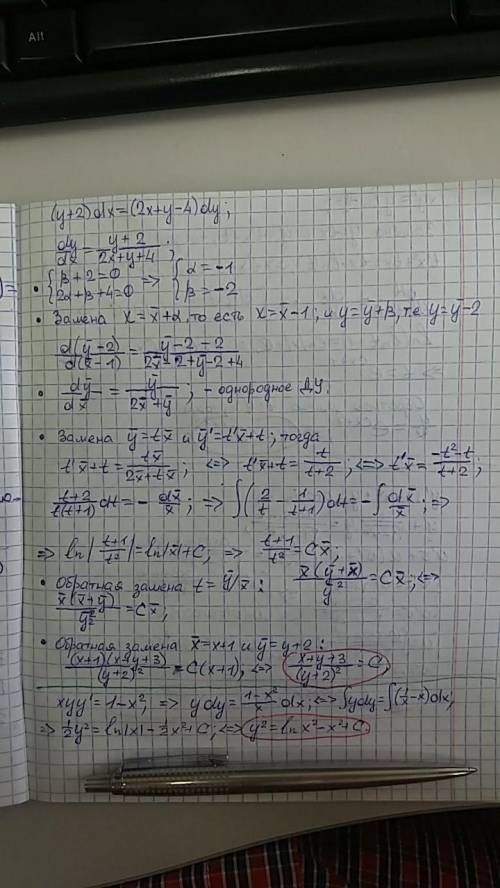 All
(y+2)dx=(2x+y-4)dy;
dy/dx = (y+2)/(2x+y+4);
• {β+2=0 {2α+β+4=0 => {α=-1 {β=-2
• Замена x=x̄+α, то есть x=x̄-1; и y=ȳ+β, т.е. y=ȳ-2
d(ȳ-2)/d(x̄-1) = (ȳ-2-2)/(2x̄-2+ȳ-2+4)
• dȳ/dx̄ = ȳ/(2x̄+ȳ); - однородное ДУ.
• Замена ȳ=tx̄ и ȳ'=t'x̄+t; тогда
t'x̄+t = tx̄/(2x̄+tx̄); <=> t'x̄+t = t/(t+2); <=> t'x̄ = (-t²-t)/(t+2);
(t+2)/(t(t+1)) dt = - dx̄/x̄; => ∫(2/t - 1/(t+1))dt = -∫dx̄/x̄; =>
=> ln|(t+1)/t²| = ln|x̄|+C; => (t+1)/t² = Cx̄;
• Обратная замена t=ȳ/x̄: x̄(ȳ+x̄)/ȳ² = Cx̄; <=>
x̄(x̄+ȳ)/ȳ² = Cx̄;
• Обратная замена x̄=x+1 и ȳ=y+2:
(x+1)(x+y+3)/(y+2)² = C(x+1); <=> (x+y+3)/(y+2)² = C.
xyy'=1-x²; => ydy = (1-x²)/x dx; <=> ∫ydy=∫(1/x-x)dx;
=> ½y²=ln|x|-½x²+C; <=> y²=lnx²-x²+C.